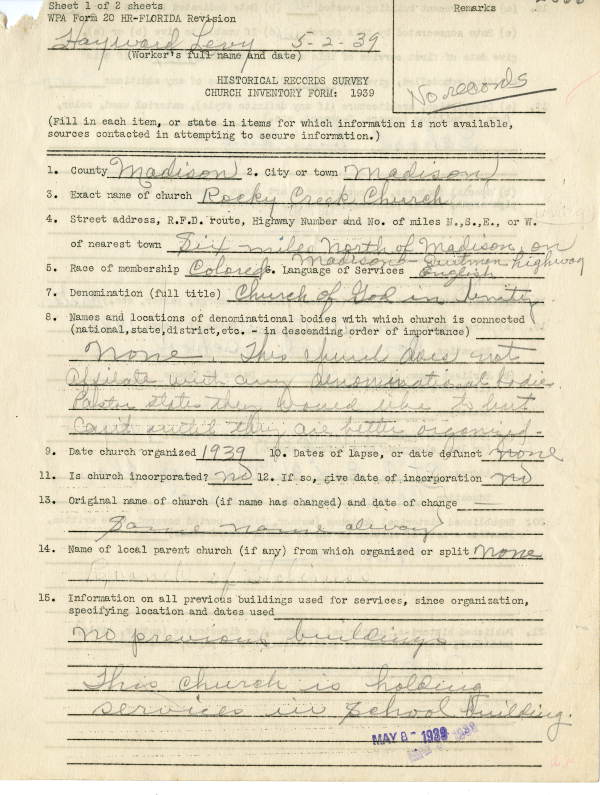 Sheet 1 of 2 sheets
WPA Form 20 HR-FLORIDA Revision
Remarks
Hayward Levy 5-2-39
(Worker's full name and date)
HISTORICAL RECORDS SURVEY
CHURCH INVENTORY FORM: 1939
No records
(Fill in each item, or state in items for which information is not available,
sources contacted in attempting to secure information.)
1. County Madison 2. City or town Madison
3. Exact name of church Rocky Creek Church
4. Street address, R.F.D. route, Highway Number and No. of miles N.,S.,E., or W.
of nearest town Six miles North of Madison, on
Madison - Quitman highway
5. Race of membership Colored 6. Language of Services English
7. Denomination (full title) Church of God in Unity
8. Names and locations of denominational bodies with which church is connected
(national,state,district,etc. - in descending order of importance)
None. This church does not
affilate with any denominational bodies.
Pastor states they would like to but
can't until they are better organized-
9. Date church organized 1939 10. Dates of lapse, or date defunct none
11. Is church incorporated? no 12. If so, give date of incorporation no
13. Original name of church (if name has changed) and date of change
Same name always
14. Name of local parent church (if any) from which organized or split none
15. Information on all previous buildings used for services, since organization,
specifying location and dates used
no previous buildings
This church is holding
services in school building.
MAY 8- 1939